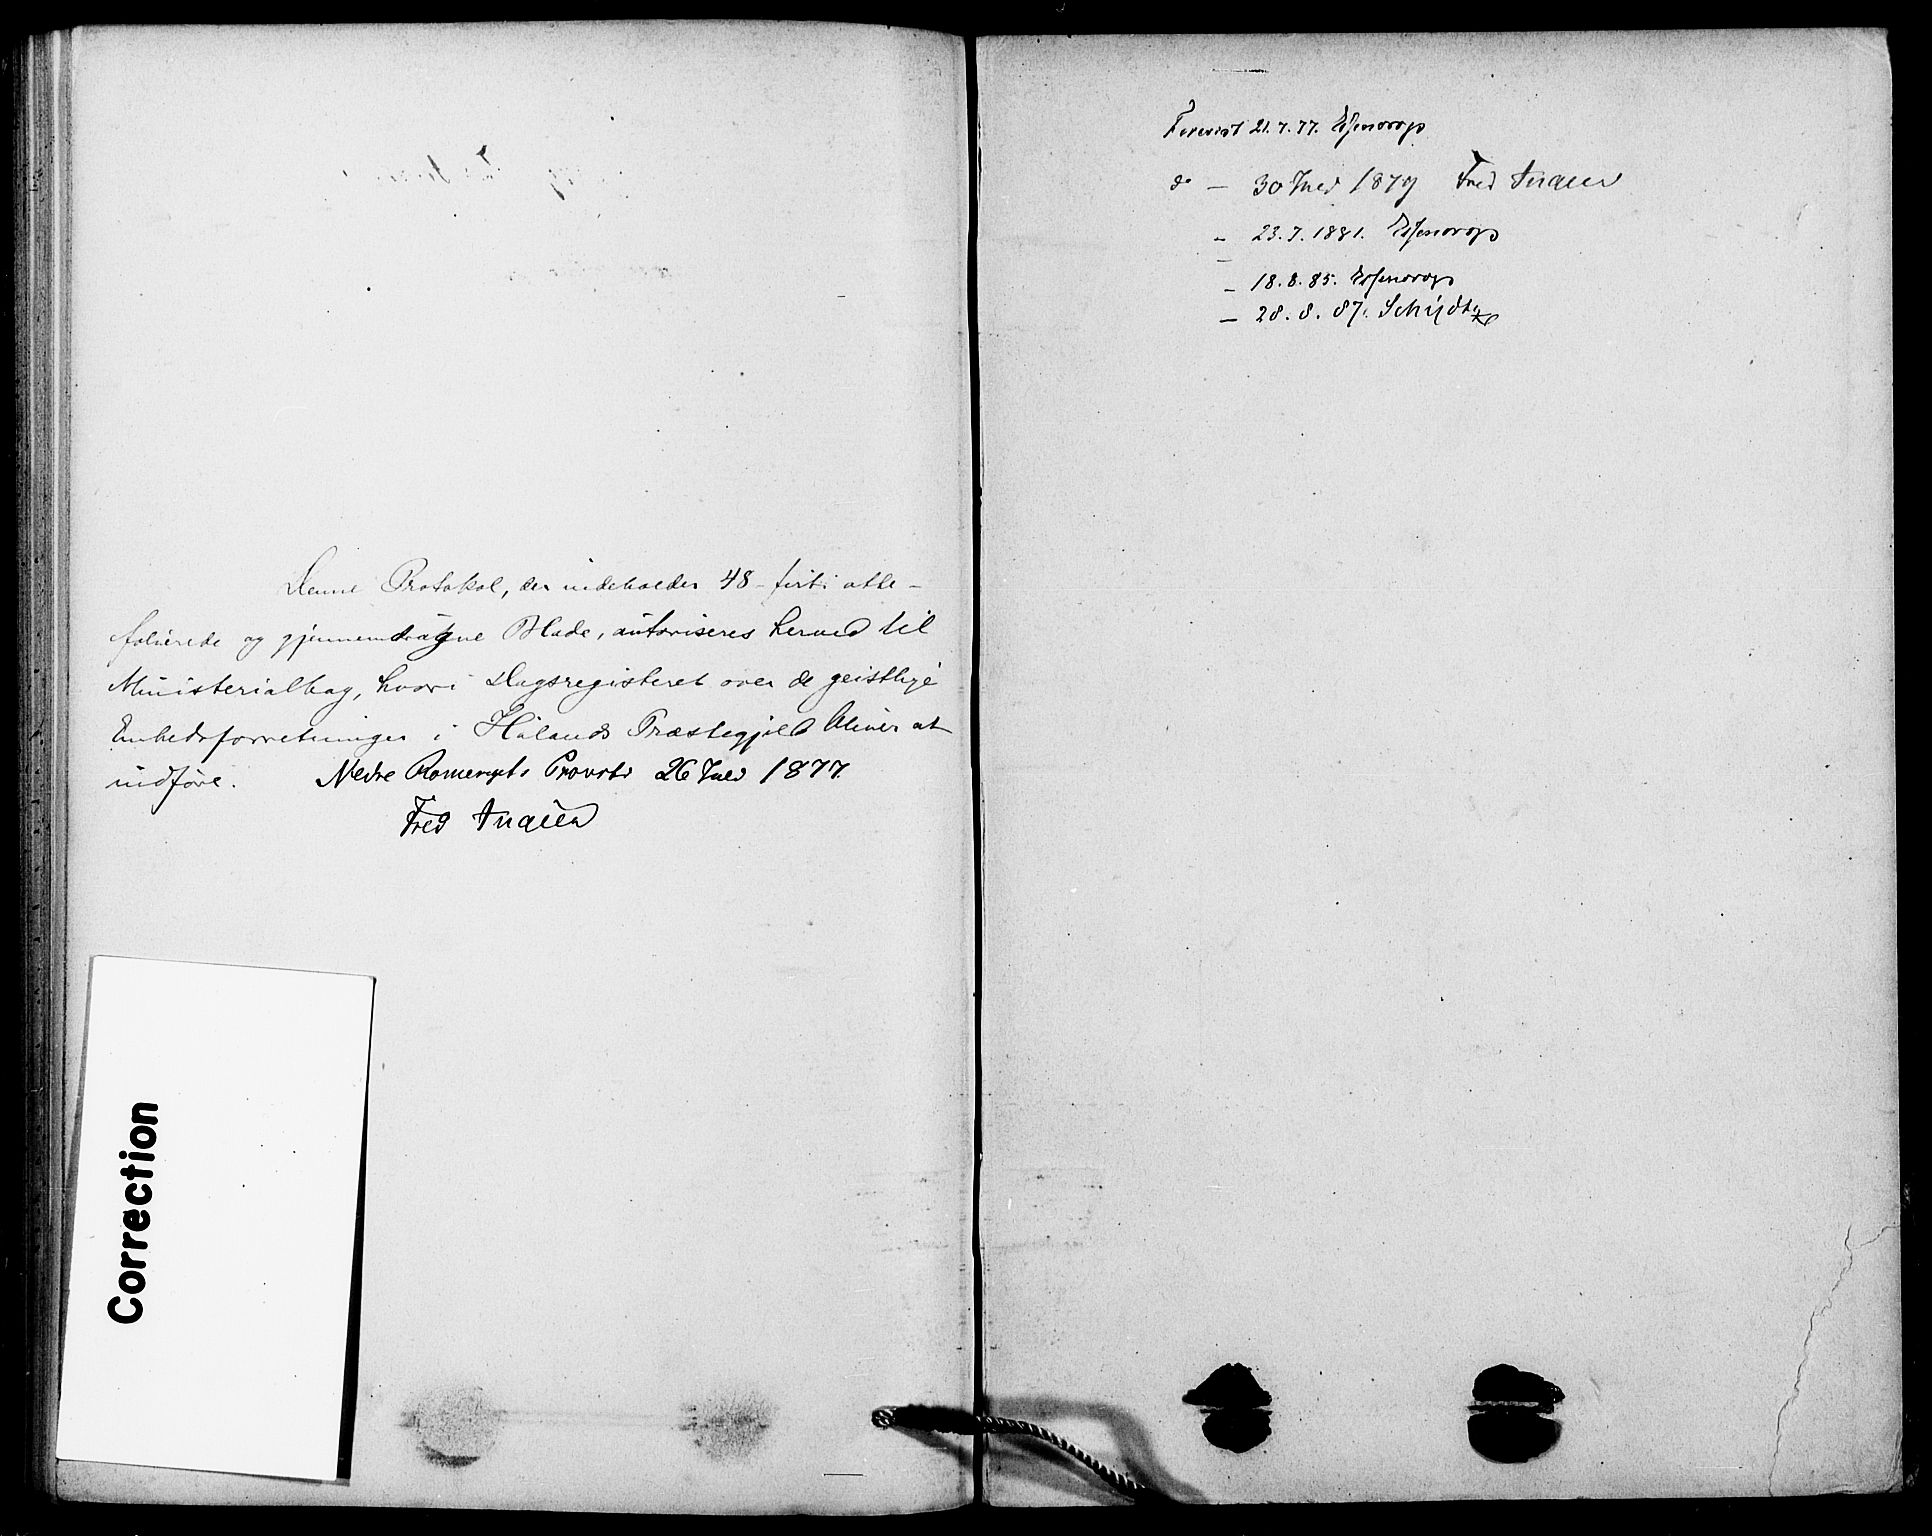 Denne Protokol, der indeholder 48 – firti otte –
folierede og gjennemdragne Blade, autoriseres herved til
Ministerialbog, hvori Dagsregisteret over de geistlige
Embedsforretninger i Hølands Præstegjeld bliver at
indføre. Nedre Romeriges Provsti 26 Juli 1877.
Fred
Correction
Forevist 21.7.77. Essendrop
do – 30 Juli 1879 Fred
– 23.7.1881. Essendrop
– 18.8.85. Essendrop
– 28.8.87.